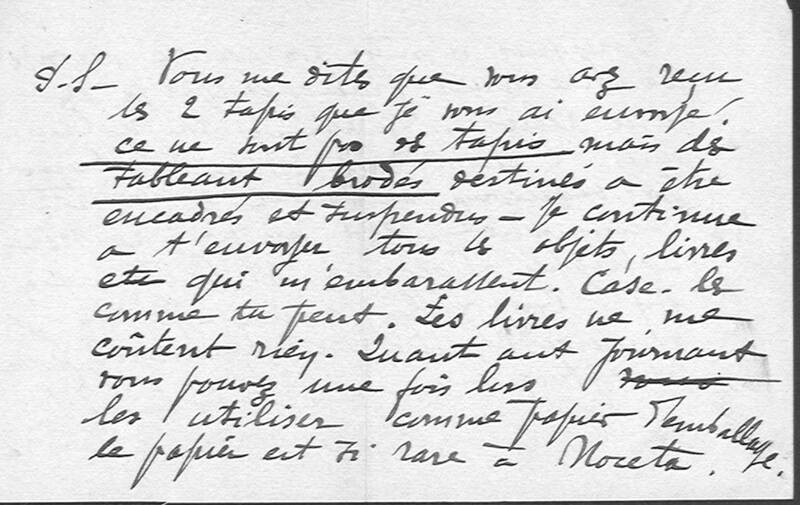 P.S- Vous me dites que vous avez reçu
les 2 tapis que je vous ai envoyé.
ce ne sont pas des tapis mais des
tableaux brodés destinés a être
encadrés et suspendus - Je continue
a t'envoyer tous les objets, livres
etc qui m'embarassent. Case-les
comme tu peux. Les livres ne me
coûtent rien. Quant aux journaux
vous pouvez une fois lus
les utiliser comme papier d'emballage.
le papier est si rare à Noceta.